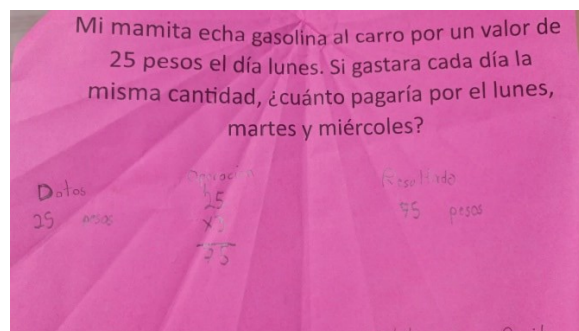 Mi mamita echa gasolina al carro por un valor de
25 pesos el día lunes. Si gastara cada día la
misma cantidad, ¿cuánto pagaría por el lunes,
martes y miércoles?
Datos Operación Resultado
25 pesos 25 95 pesos
x3
75